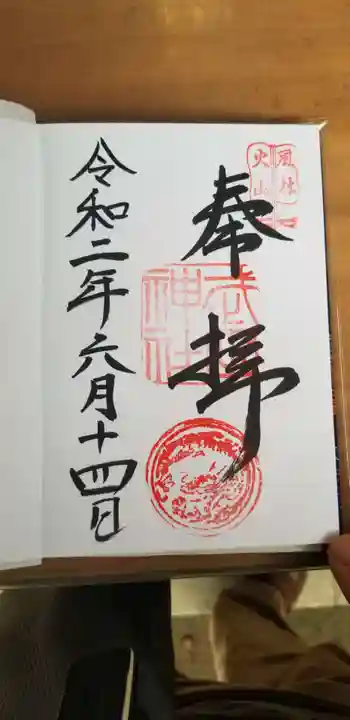 風林
火山
奉拝
神社
令和二年六月十四日